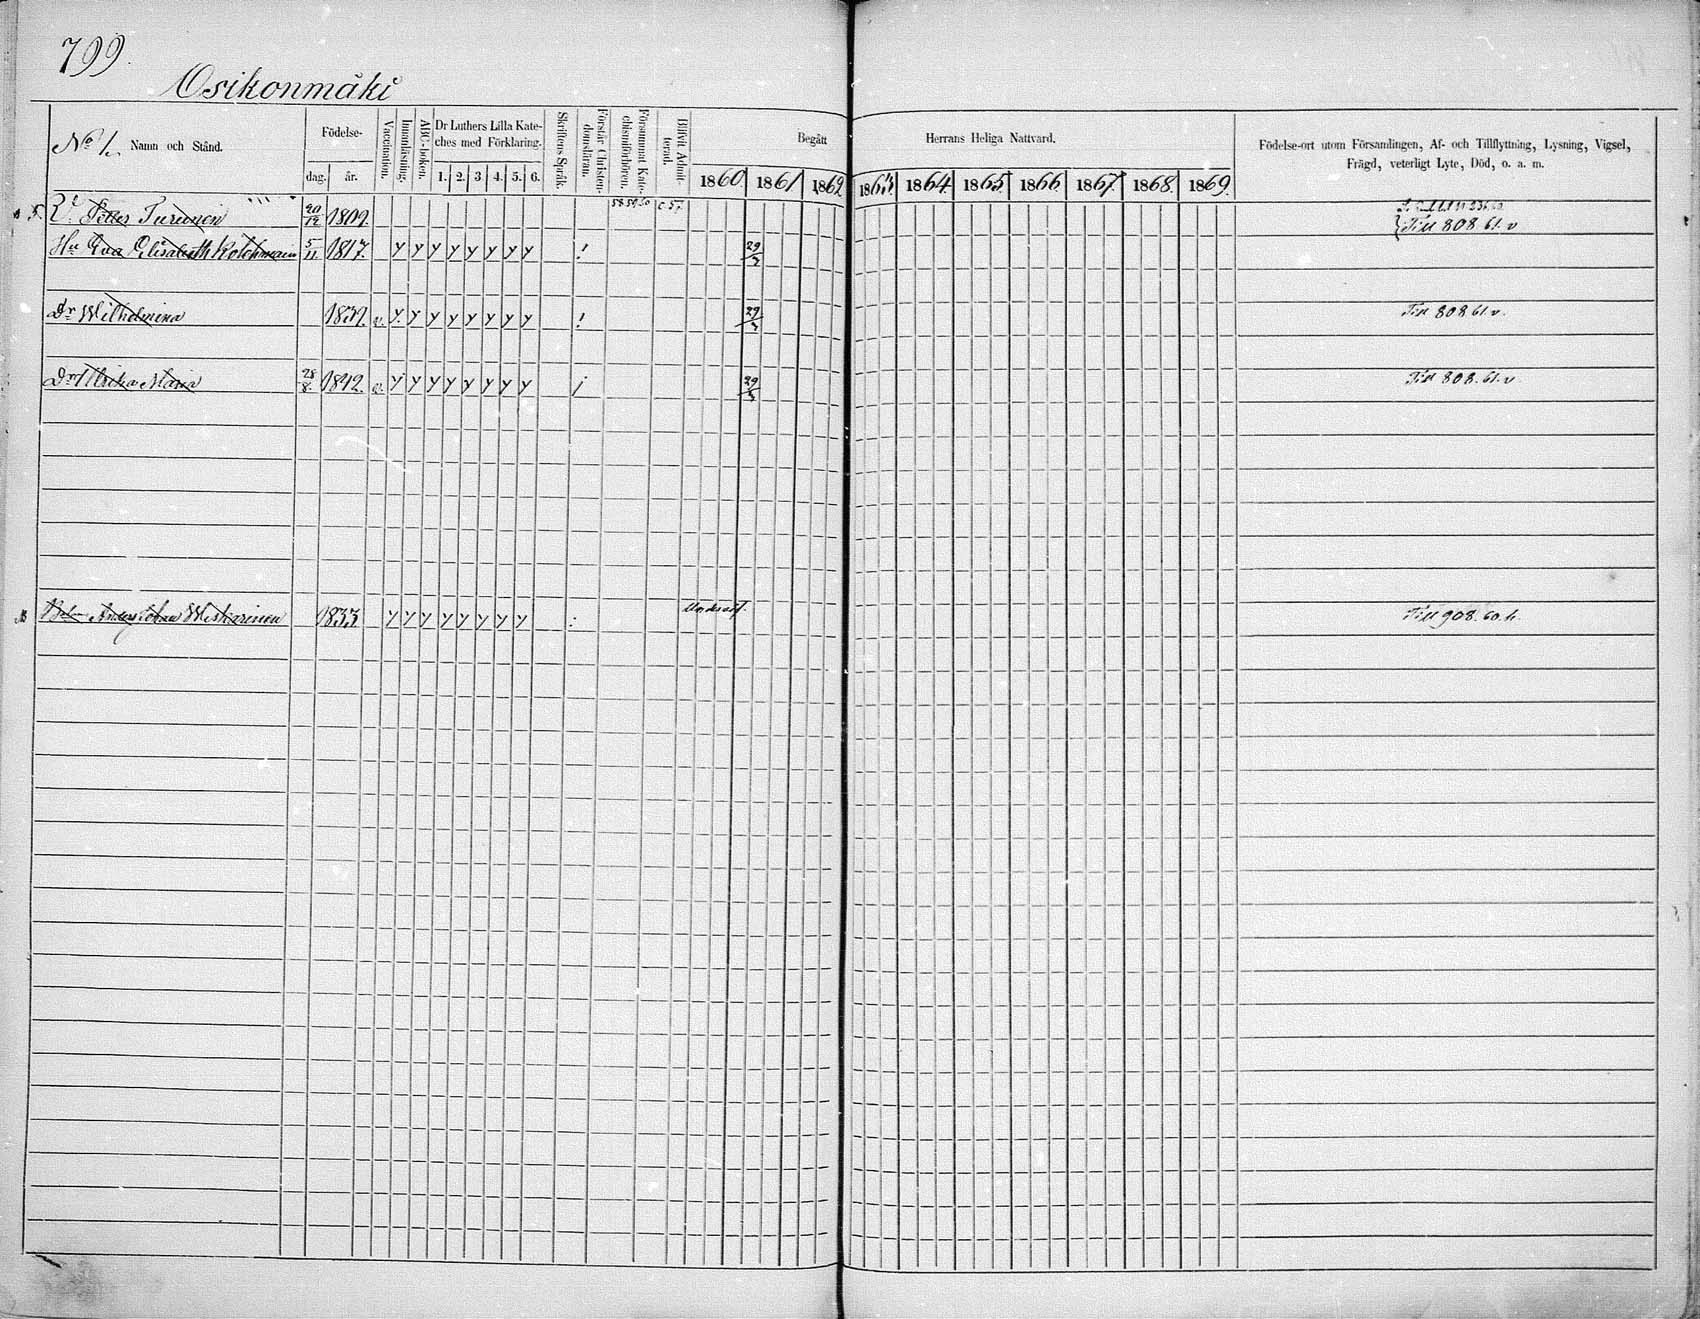 799.
Osikonmäki
No 1. Namn och Stånd.
Födelse-
dag. år.
Vaccination.
Innanläsning.
ABC-boken.
Dr Luthers Lilla Kate-
ches med Förklaring.
1. 2. 3 4. 5. 6.
Skriftens Språk.
Förstår Christen-
domsläran.
Försummat Kate-
chismiförhören.
Blifvit Admit-
terad.
Begått Herrans Heliga Nattvard.
1860. 1861 1862 1863 1864. 1865. 1866. 1867. 1868. 1869.
Födelse-ort utom Församlingen, Af- och Tillflyttning, Lysning, Vigsel,
Frägd, veterligt Lyte, Död, o. a. m.
5. Petter Turunen 20/12 1809. 58 59 60 c. 57.
Till 808 61. v
Hu Eva Elisabeth Kolehmain 5/11 1817. y y y y y y y y ! 29/3
Dr Wilhelmina 1839. v. y. y y y y y y y ! 29/3 Till 808 61. v.
Dr Ulrika Maria 28/8. 1842. v. y y y y y y y y 29/3 Till 808. 61. v
Anders Johan Wiskarinen 1833. y y y y y y y y Till 908. 60. h.